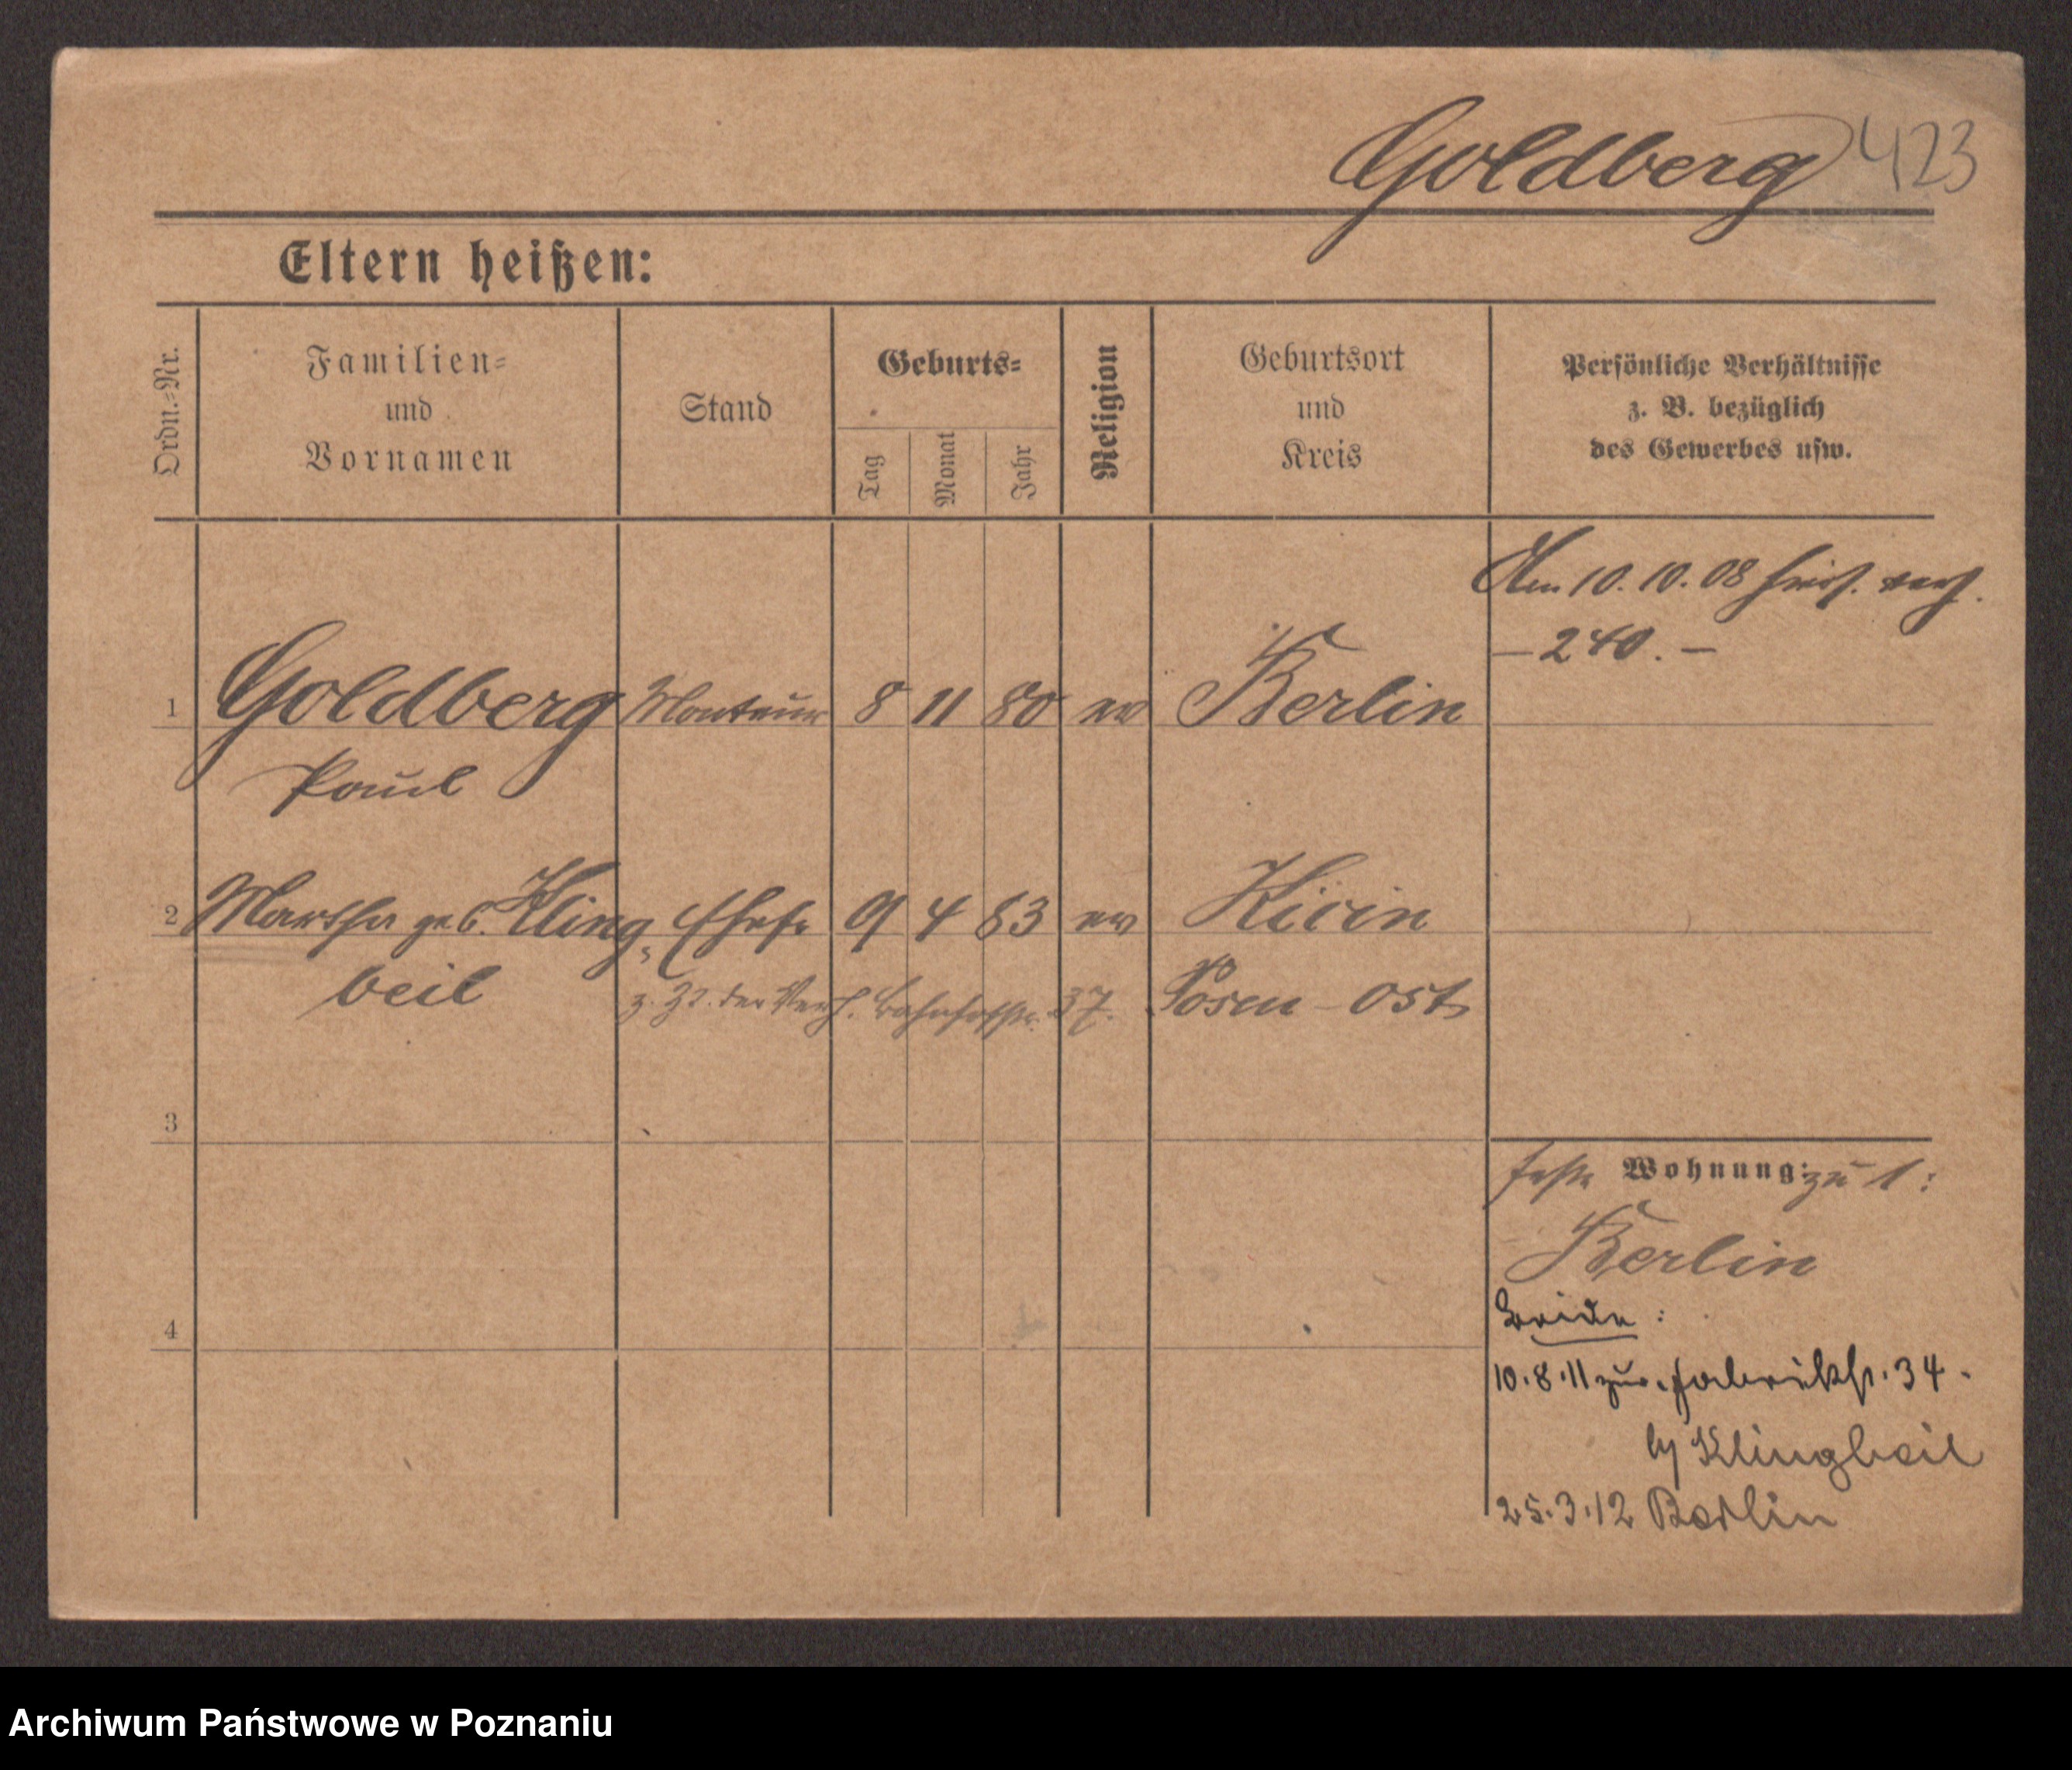 Goldberg 423
Eltern heißen:
Ordn.-Nr.
Familien-
und
Vornamen
Stand
Geburts-
Tag
Monat
Jahr
Religion
Geburtsort
und
Kreis
Persönliche Verhältnisse
z. B. bezüglich
des Gewerbes usw.
Am 10.10.08 hier
— 240. —
1 Goldberg Monteur 8 11 80 ev Berlin
Paul
2 Martha geb. Kling- Ehefr 9 4 83 ev Kicin
beil z. Zt. der Verh. Bahnhofstr. 37. Posen-Ost
3
feste Wohnung: zu 1:
Berlin
Beide:
4
10.8.11 zur. Fabrikstr. 34.
b/ Klingbeil
25.3.12 Berlin
Archiwum Państwowe w Poznaniu